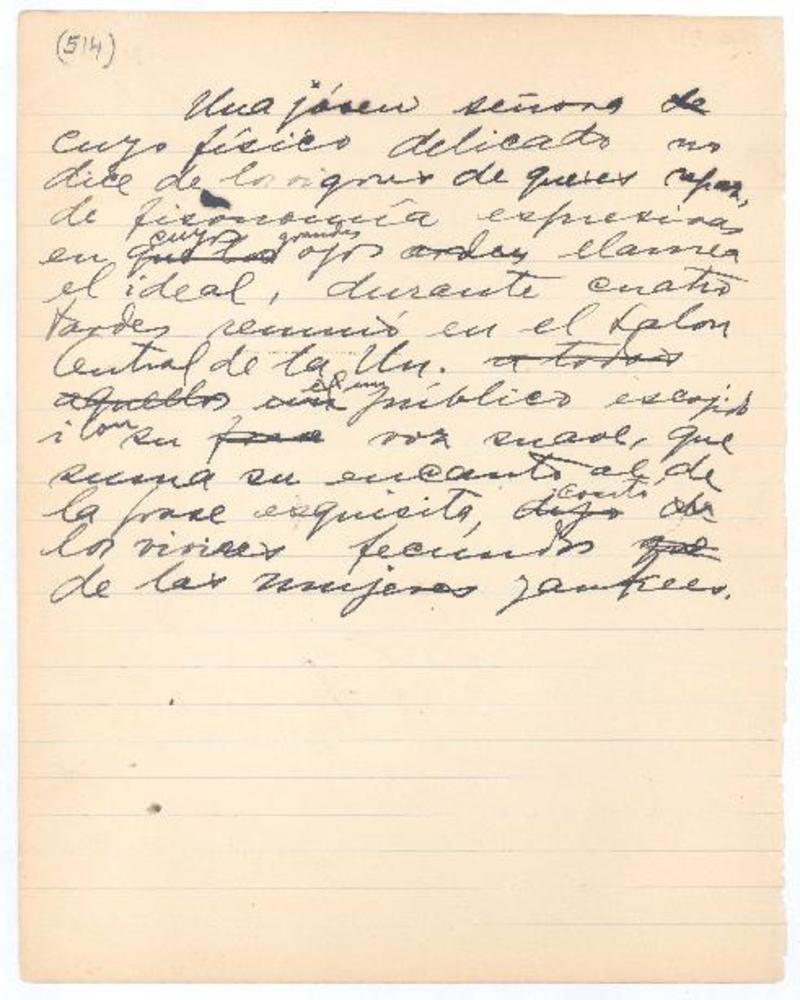 (514)
Una jóven señora de
cuyo físico delicado no
dice de los rigores de que es capaz,
de fisonomía espresiva
cuyos grandes
en que los ojos arden llamea
el ideal, durante cuatro
tardes reunió en el Salon
Central de la Un. a todos
aquellos un público escojido
i con su voz suave, que
suma su encanto al de
contó
la frase esquisita, dijo de
los fecundos que
de las mujeres yankees.